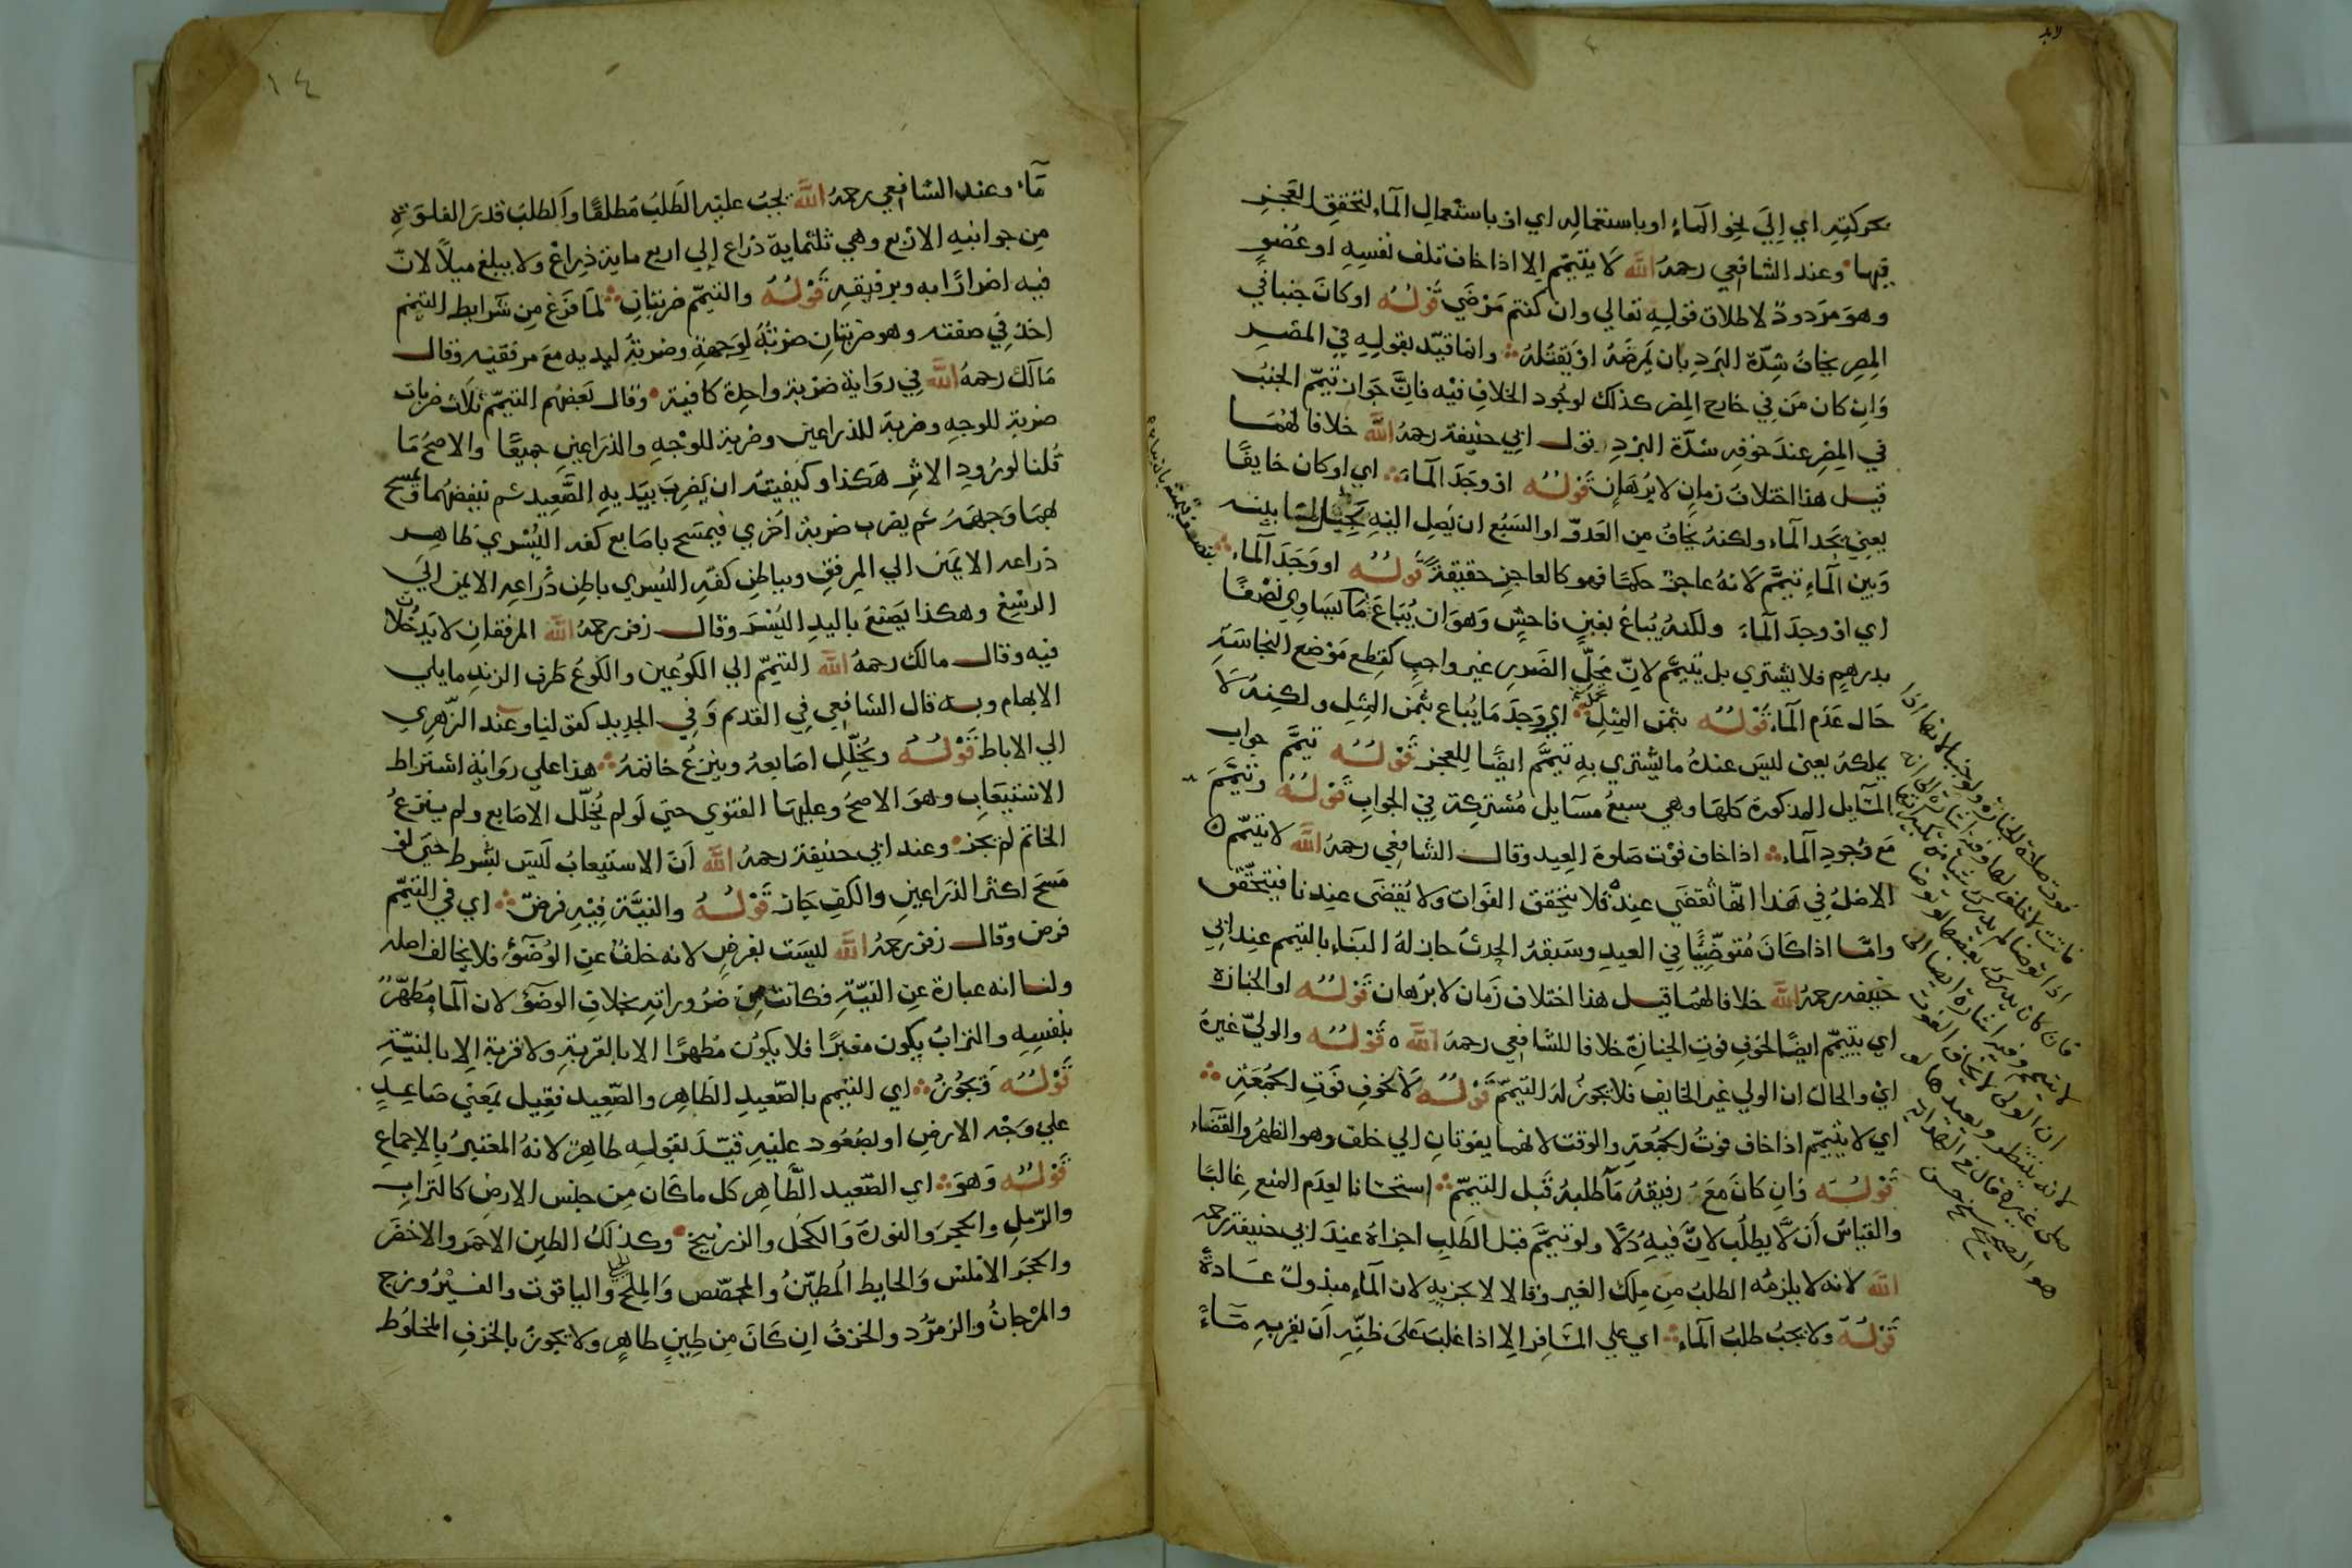 بحركته اي الي نحو الماء او باستعماله اي او باستعمال الماء لتحقق العجز
فيها وعند الشافعي رحمه الله لا يتيمم الا اذا خاف تلف نفسه او عضو
وهو مردود لاطلاق قوله تعالي وان كنتم مرضي قوله او كان جنبا في
المصر يخاف شدة البرد بان يمرضه او يقتله وانما قيد بقوله في المصر
وان كان من في خارج المصر كذلك لوجود الخلاف فيه فان جواز تيمم الجنب
في المصر عند خوفه شدة البرد قول ابي حنيفة رحمه الله خلافا لهما
قيل هذا اختلاف زمان لا برهان قوله او وجد الماء اي او كان خايفا
يعني يجد الماء ولكنه يخاف من العدو او السبع ان يصل اليه بينه
وبين الماء تيمم لانه عاجز حكما فهو كالعاجز حقيقة قوله او وجد الماء
اي او وجد الماء ولكنه يباع بغبن فاحش وهو ان يباع ما يساوي نصفا
بدرهم فلا يشتري بل تيمم لان تحمل الضرر غير واجب كقطع موضع النجاسة
حال عدم الماء قوله بثمن المثل اي وجد ما يباع بثمن المثل ولكنه لا
يملكه يعني ليس عنده ما يشتري به تيمم ايضا للعجز قوله تيمم جواب
المسايل المذكورة كلها وهي سبع مسايل مشتركة في الجواب قوله وتيمم
مع وجود الماء اذا خاف فوت صلوة العيد وقال الشافعي رحمه الله لا يتيمم
الاصل في هذا انها تقضي عنده فلا يتحقق الفوات ولا يقضي عندنا فيتحقق
واما اذا كان متوضيا في العيد وسبقه الحدث جاز له البناء بالتيمم عند ابي
حنيفه رحمه الله خلافا لهما قيل هذا اختلاف زمان لا برهان قوله او الجنازة
اي يتيمم ايضا لخوف فوت الجنازة خلافا للشافعي رحمه الله قوله والولي غيره
اي والحال ان الولي غير الخايف فلا يجوز له التيمم قوله لا لخوف فوت الجمعة
اي لا يتيمم اذا خاف فوت الجمعة والوقت لانهما يفوتان الي خلف وهو الظهر والقضاء
قوله وان كان مع رفيقه ماء طلبه قبل التيمم استحسانا لعدم المنع غالبا
والقياس ان لا يطلب لان فيه ذلا ولو تيمم قبل الطلب اجزاه عند ابي حنيفة رحمه
الله لانه لا يلزمه الطلب من ملك الغير وقالا لا يجزيه لان الماء مبذول عادة
قوله ولا يجب طلب الماء اي علي المسافر الا اذا غلب علي ظنه ان بقربه ماء
١٤
ماء وعند الشافعي رحمه الله يجب عليه الطلب مطلقا والطلب قدر الغلوة
من جوانبه الاربع وهي ثلثماية ذراع الي اربع ماية ذراع ولا يبلغ ميلا لان
فيه اضرارا به وبرفيقه قوله والتيمم ضربتان لما فرغ من شرايط التيمم
اخذ في صفته وهو ضربتان ضربة لوجهه وضربة ليديه مع مرفقيه وقال
مالك رحمه الله في رواية ضربة واحدة كافية وقال بعضهم التيمم ثلاث ضربات
ضربة للوجه وضربة للذراعين وضربة للوجه والذراعين جميعا والاصح ما
قلنا لورود الاثر هكذا وكيفيته ان يضرب بيديه الصعيد ثم ينفضهما فيمسح
بهما وجهه ثم يضرب ضربة اخري فيمسح باصابع كفه اليسري ظاهر
ذراعه الايمن الي المرفق وبباطن كفه اليسري باطن ذراعه الايمن الي
الرسغ وهكذا يصنع باليد اليسر وقال زفر رحمه الله المرفقان لا يدخلان
فيه وقال مالك رحمه الله التيمم الي الكوعين والكوع طرف الزند مايلي
الابهام وبه قال الشافعي في القدم وفي الجديد كقولنا وعند الزهري
الي الاباط قوله ويخلل اصابعه وينزع خاتمه هذا علي رواية اشتراط
الاستيعاب وهو الاصح وعليها الفتوي حتي لو لم يخلل الاصابع ولم ينزع
الخاتم لم يجز وعند ابي حنيفة رحمه الله ان الاستيعاب ليس بشرط حتي لو
مسح اكثر الذراعين والكف جاز قوله والنية فيه فرض اي في التيمم
فرض وقال زفر رحمه الله ليست بفرض لانه خلف عن الوضوء فلا يخالف اصله
ولنا انه عبارة عن النية فكانت من ضروراته بخلاف الوضوء لان الماء مطهر
بنفسه والتراب يكون مغبرا فلا يكون مطهرا الا بالقربة ولا قربة الا بالنية
قوله فيجوز اي التيمم بالصعيد الطاهر والصعيد فعيل بمعني صاعد
علي وجه الارض او بصعود عليه قيد بقوله طاهر لانه المعتبر بالاجماع
قوله وهو اي الصعيد الطاهر كل ما كان من جنس الارض كالتراب
والرمل والحجر والنورة والكحل والزرنيخ وكذلك الطين الاحمر والاخضر
والحجر الاملس والحايط المطين والمجصص والملح والياقوت والفيروزج
والمرجان والزمرد والخزف ان كان من طين طاهر ولا يجوز بالخزف المخلوط